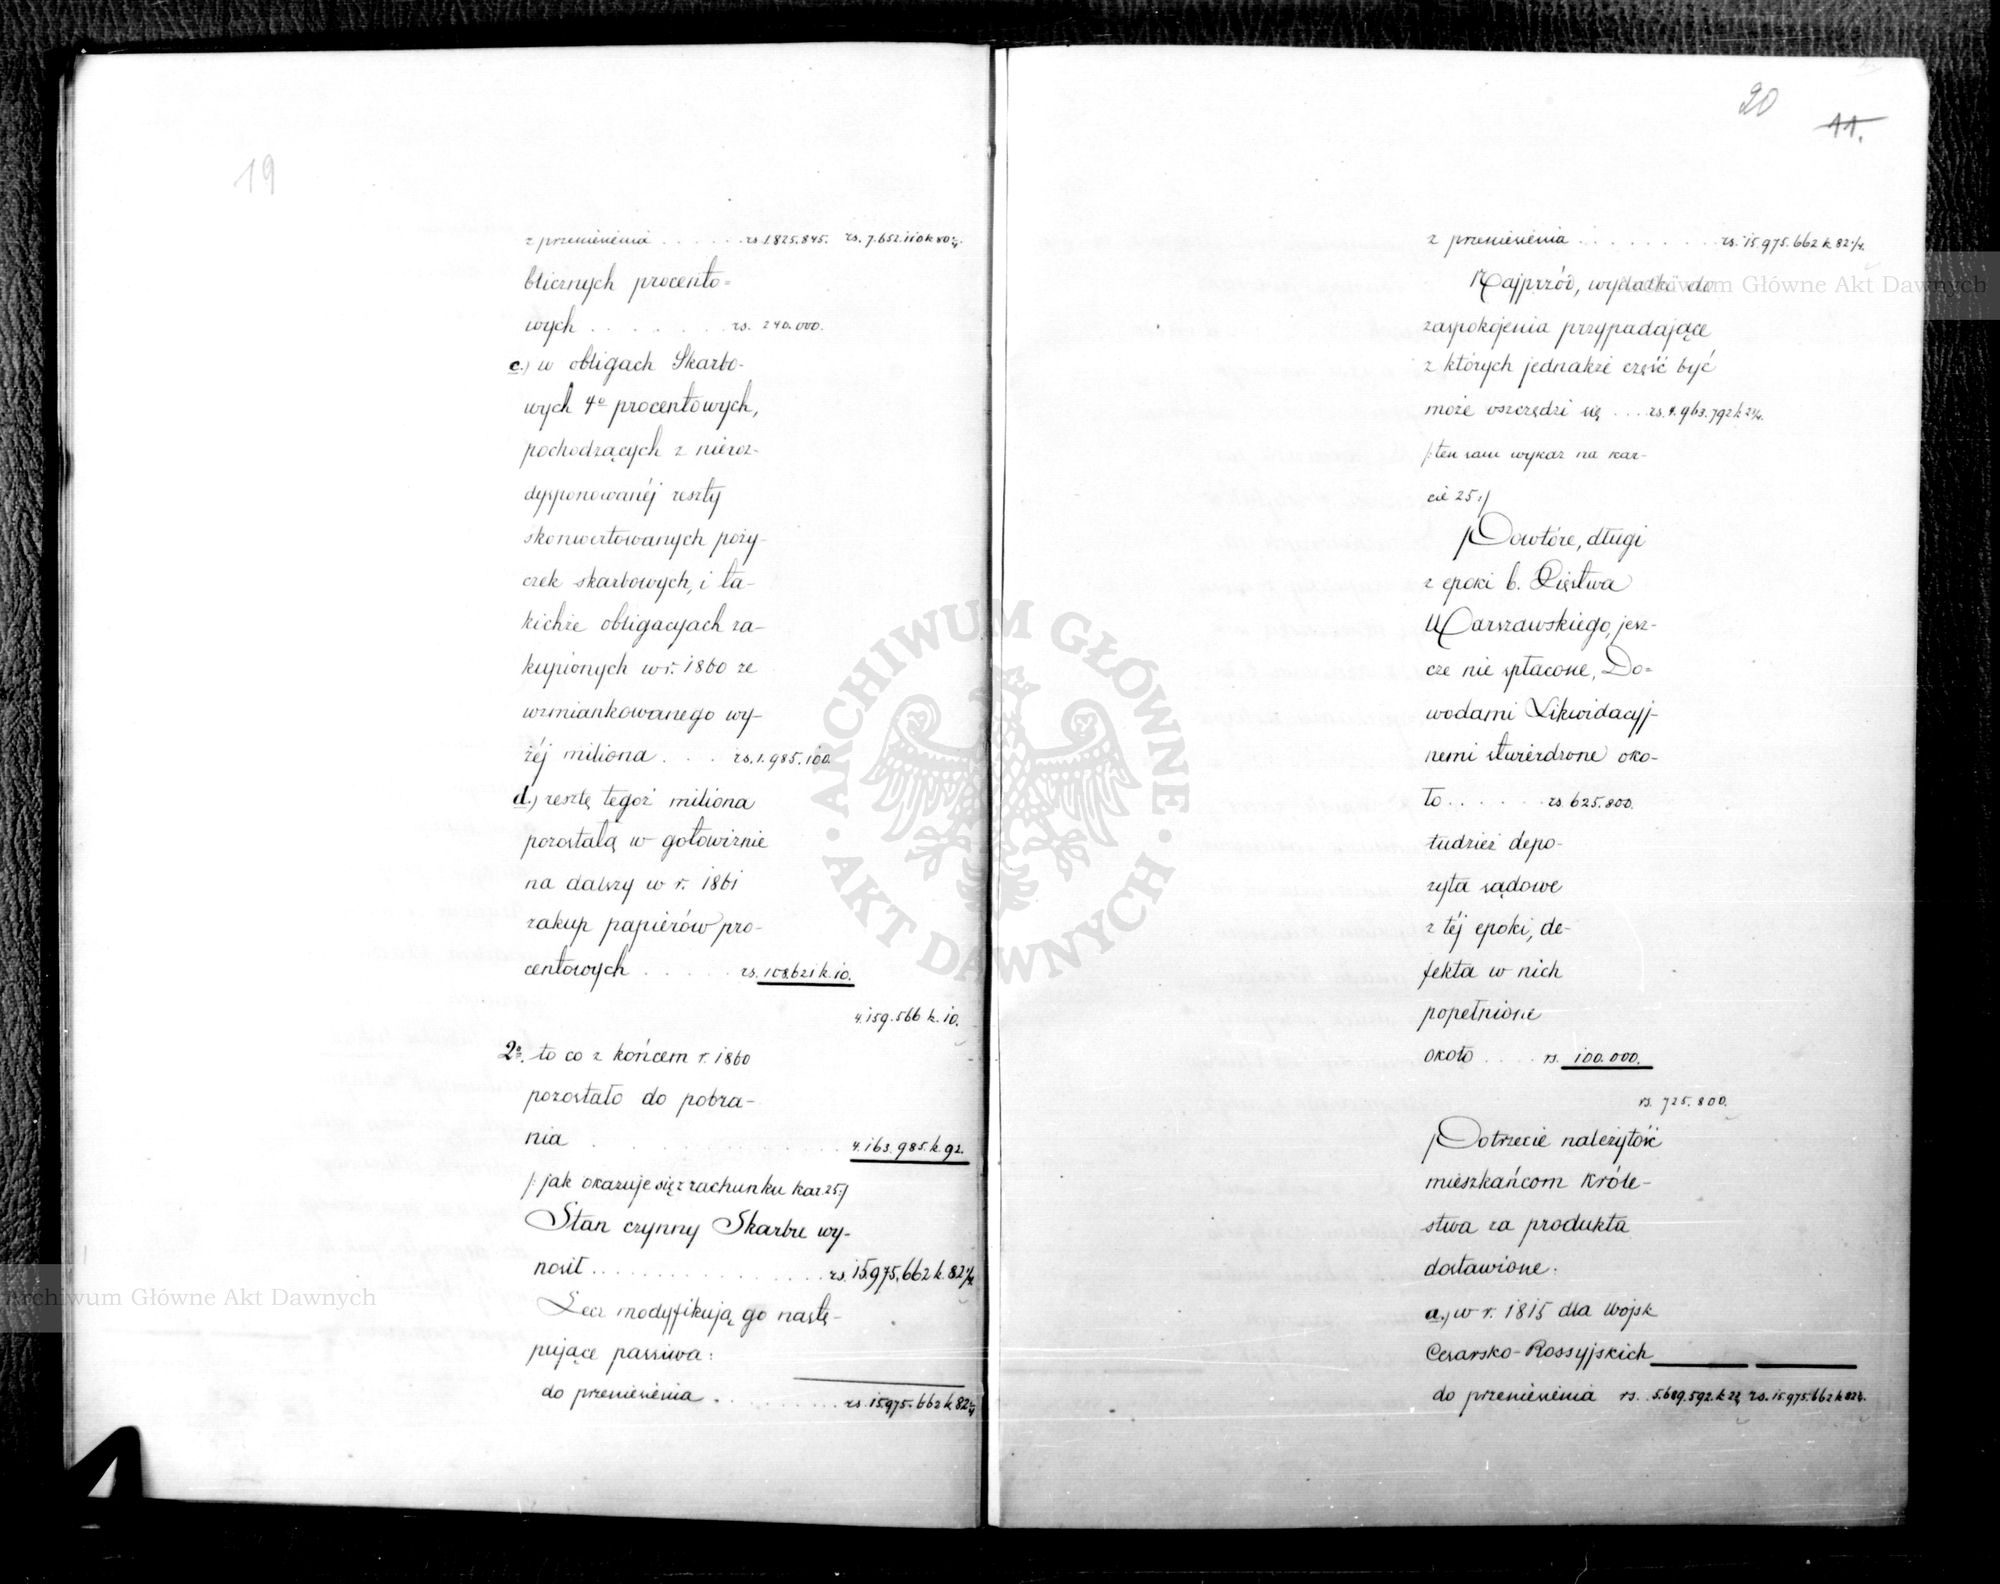 19
z przeniesienia . . . . . . rs. 1.825.845. rs. 7.652.110 k 80 2/4.
blicznych procento=
wych . . . . . . . rs. 240.000.
c.) w obligach Skarbo-
wych 4o procentowych,
pochodzących z nieroz-
dysponowanéj reszty
skonwertowanych poży-
czek skarbowych, i ta-
kichże obligacyach za-
kupionych w r. 1860 ze
wzmiankowanego wy-
żéj miliona . . . rs. 1.985.100.
d.) resztę tegoż miliona
pozostałą w gotowiznie
na dalszy w r. 1861
zakup papiérów pro-
centowych . . . . . rs. 108.621 k. 10.
4.159.566 k. 10.
2o. to co z końcem r. 1860
pozostało do pobra-
nia . . . . . . . . . . . 4.163.985. k. 92.
/: jak okazuje się z rachunku kar. 25 :/
Stan czynny Skarbu wy-
nosił . . . . . . . . . . . . . . rs. 15.975.662 k. 82 2/4
Lecz modyfikują go nastę-
pujące passiwa:
do przeniesienia . . . . . . . . . rs. 15.975.662 k 82 2/4
20
11.
z przeniesienia . . . . . . . . rs. 15.975.662 k 82 2/4.
Najprzód, wydatki do
zaspokojenia przypadające
z których jednakże część być
może oszczędzi się . . . rs. 4.963.792 k 2 2/4.
/: ten sam wykaz na kar-
cie 25 :/
Powtóre, długi
z epoki b. Xięstwa
Warszawskiego, jesz-
cze nie spłacone, Do=
wodami Likwidacyj-
nemi stwierdzone oko-
ło . . . . . . rs. 625.800.
tudzież depo-
zyta sądowe
z téj epoki, de-
fekta w nich
popełnione
około . . . . rs. 100.000.
rs. 725.800.
Potrzecie należytość
mieszkańcom Króle-
stwa za produkta
dostawione:
a.) w r. 1815 dla Wojsk
Cesarsko-Rossyjskich
do przeniesienia rs. 5.689.592. k 2 2/4 rs. 15.975.662 k 82 2/4.
Archiwum Główne Akt Dawnych
Archiwum Główne Akt Dawnych
ARCHIWUM GŁÓWNE • AKT DAWNYCH •